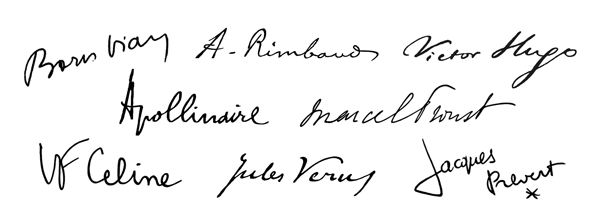 Boris Vian A. Rimbaud Victor Hugo
Apollinaire Marcel Proust
LF Celine Jules Verne Jacques
Prévert